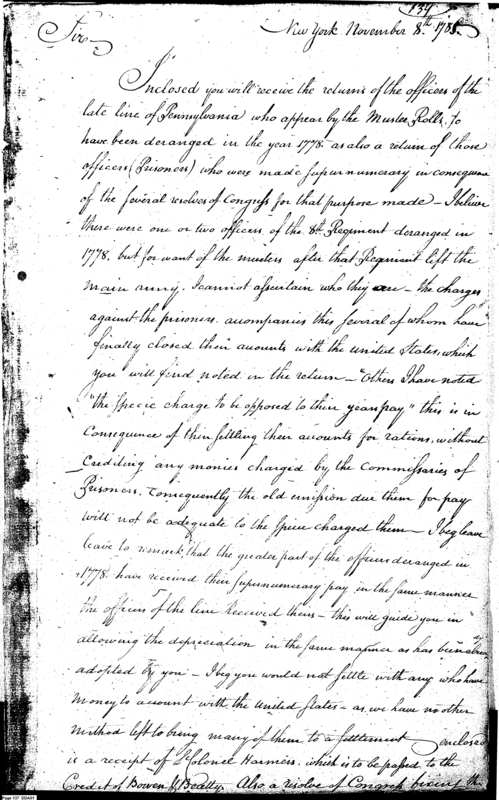 134
New York November 8th 1785.
Sir
Inclosed you will receive the returns of the officers of the
late line of Pennsylvania who appear by the Muster Rolls, to
have been deranged in the year 1778. as also a return of those
officers (Prisoners) who were made supurnumerary in consequence
of the several resolves of Congress for that purpose made – I believe
there were one or two officers of the 8th Regiment deranged in
1778. but for want of the musters after that Regiment left the
main army, I cannot ascertain who they are – the charges
against the prisoners. accompanies this several of whom have
finally closed their accounts with the united States, which
you will find noted in the return – "Others I have noted
"the specie charge to be opposed to their years pay" this is in
Consequence of their settling their accounts for rations, without
Crediting any monies charged by the Commissaries of
Prisoners, consequently the old emission due them for pay
will not be adequate to the specie charged them – I beg leave
leave to remark that the greater part of the officers deranged in
1778. have received their supernumerary pay in the same manner
the officers of the line received theirs – this will guide you in
allowing the depreciation in the same manner as has been
adopted by you – I beg you would not settle with any who have
money to account with the United States – as we have no other
method left to bring many of them to a settlement enclosed
is a receipt of Colonel Harmers. which is to be passed to the
Credit of Bowen & Beatty. Also a resolve of Congress the
Page 137